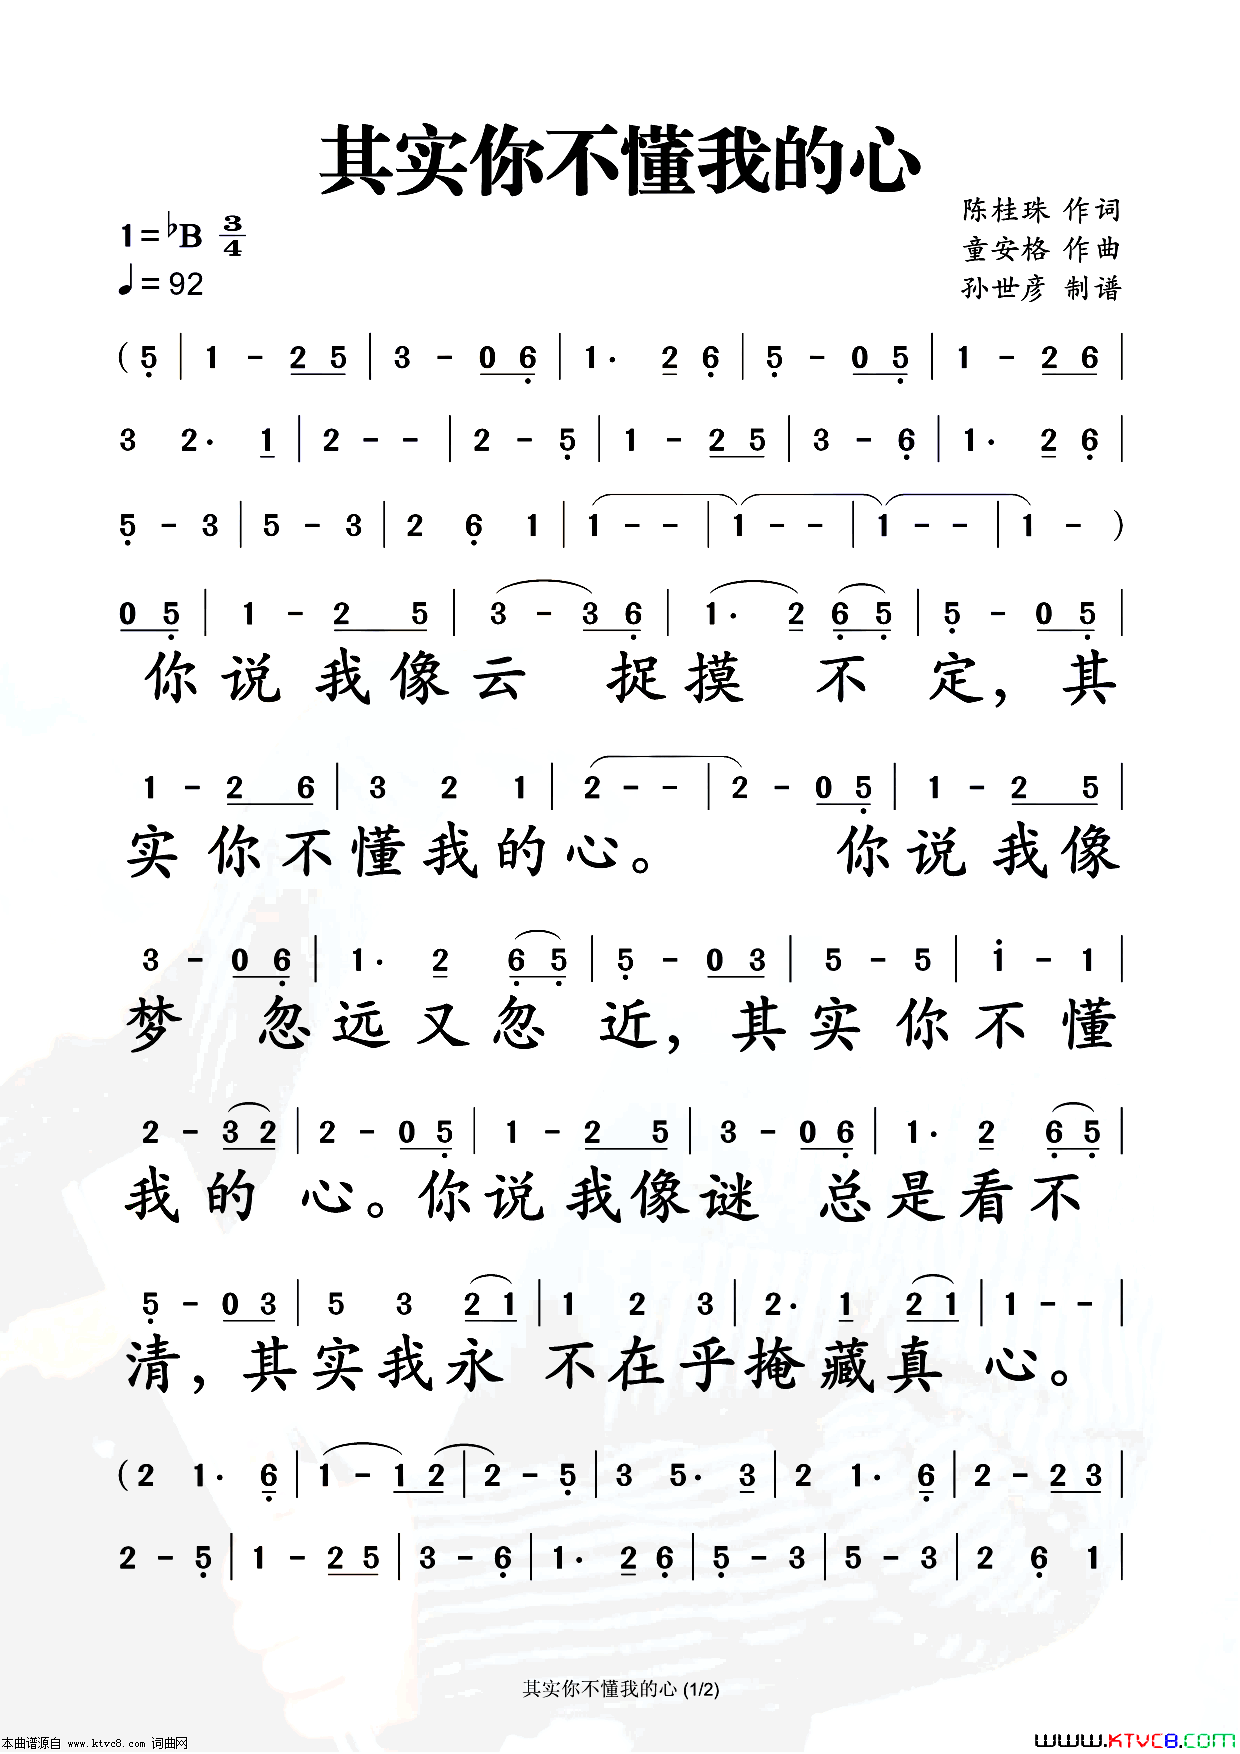 其实你不懂我的心
陈桂珠 作词
1=♭B 3/4
童安格 作曲
♩= 92
孙世彦 制谱
( 5̣ | 1 - 2 5 | 3 - 0 6̣ | 1· 2 6̣ | 5̣ - 0 5̣ | 1 - 2 6 |
3 2· 1 | 2 - - | 2 - 5̣ | 1 - 2 5 | 3 - 6̣ | 1· 2 6̣ |
5̣ - 3 | 5 - 3 | 2 6̣ 1 | 1 - - | 1 - - | 1 - - | 1 - )
0 5̣ | 1 - 2 5 | 3 - 3 6̣ | 1· 2 6̣ 5̣ | 5̣ - 0 5̣ |
你说我像云 捉摸 不 定，其
1 - 2 6 | 3 2 1 | 2 - - | 2 - 0 5̣ | 1 - 2 5 |
实你不懂我的心。 你说我像
3 - 0 6̣ | 1· 2 6̣ 5̣ | 5̣ - 0 3 | 5 - 5 | 1̇ - 1 |
梦 忽远又忽 近，其实你不懂
2 - 3 2 | 2 - 0 5̣ | 1 - 2 5 | 3 - 0 6̣ | 1· 2 6̣ 5̣ |
我的 心。你说我像谜 总是看不
5̣ - 0 3 | 5 3 2 1 | 1 2 3 | 2· 1 2 1 | 1 - - |
清，其实我永 不在乎掩藏真 心。
( 2 1· 6̣ | 1 - 1 2 | 2 - 5̣ | 3 5· 3 | 2 1· 6̣ | 2 - 2 3 |
2 - 5̣ | 1 - 2 5 | 3 - 6̣ | 1· 2 6̣ | 5̣ - 3 | 5 - 3 | 2 6̣ 1 |
其实你不懂我的心 (1/2)
本曲谱源自 www.ktvc8.com 词曲网
WWW.KTVC8.COM